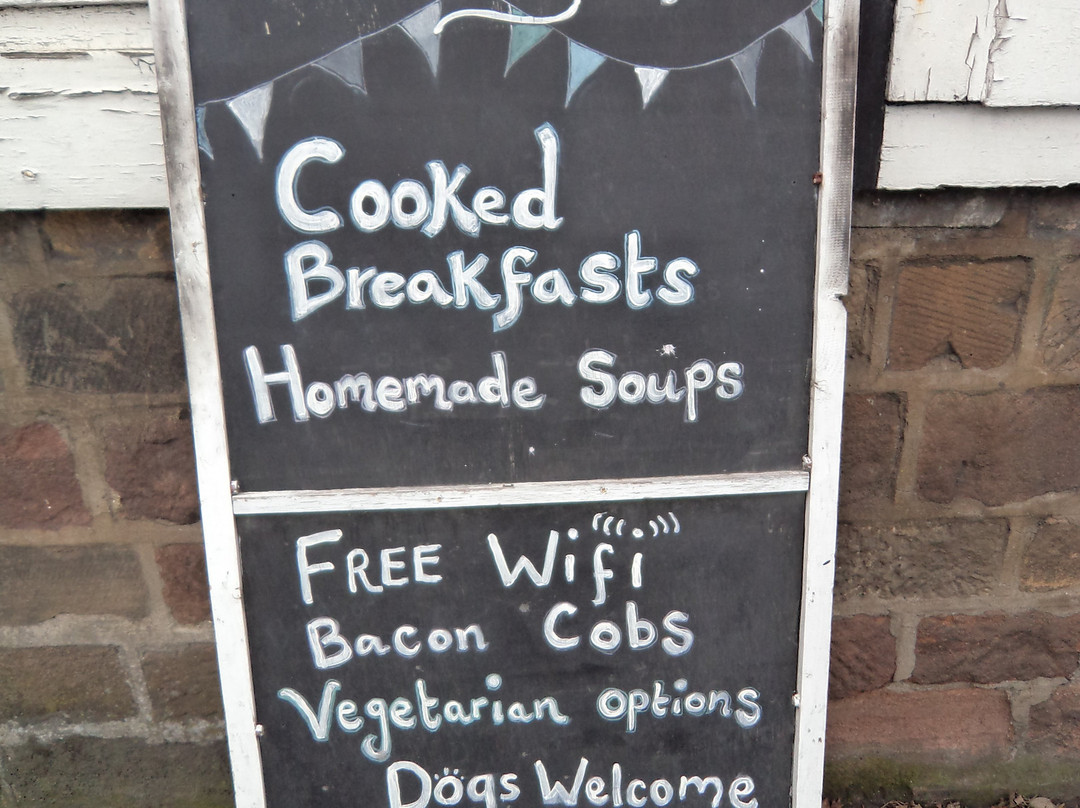 Cooked
Breakfasts
Homemade Soups
FREE Wifi
Bacon Cobs
Vegetarian options
Dogs Welcome